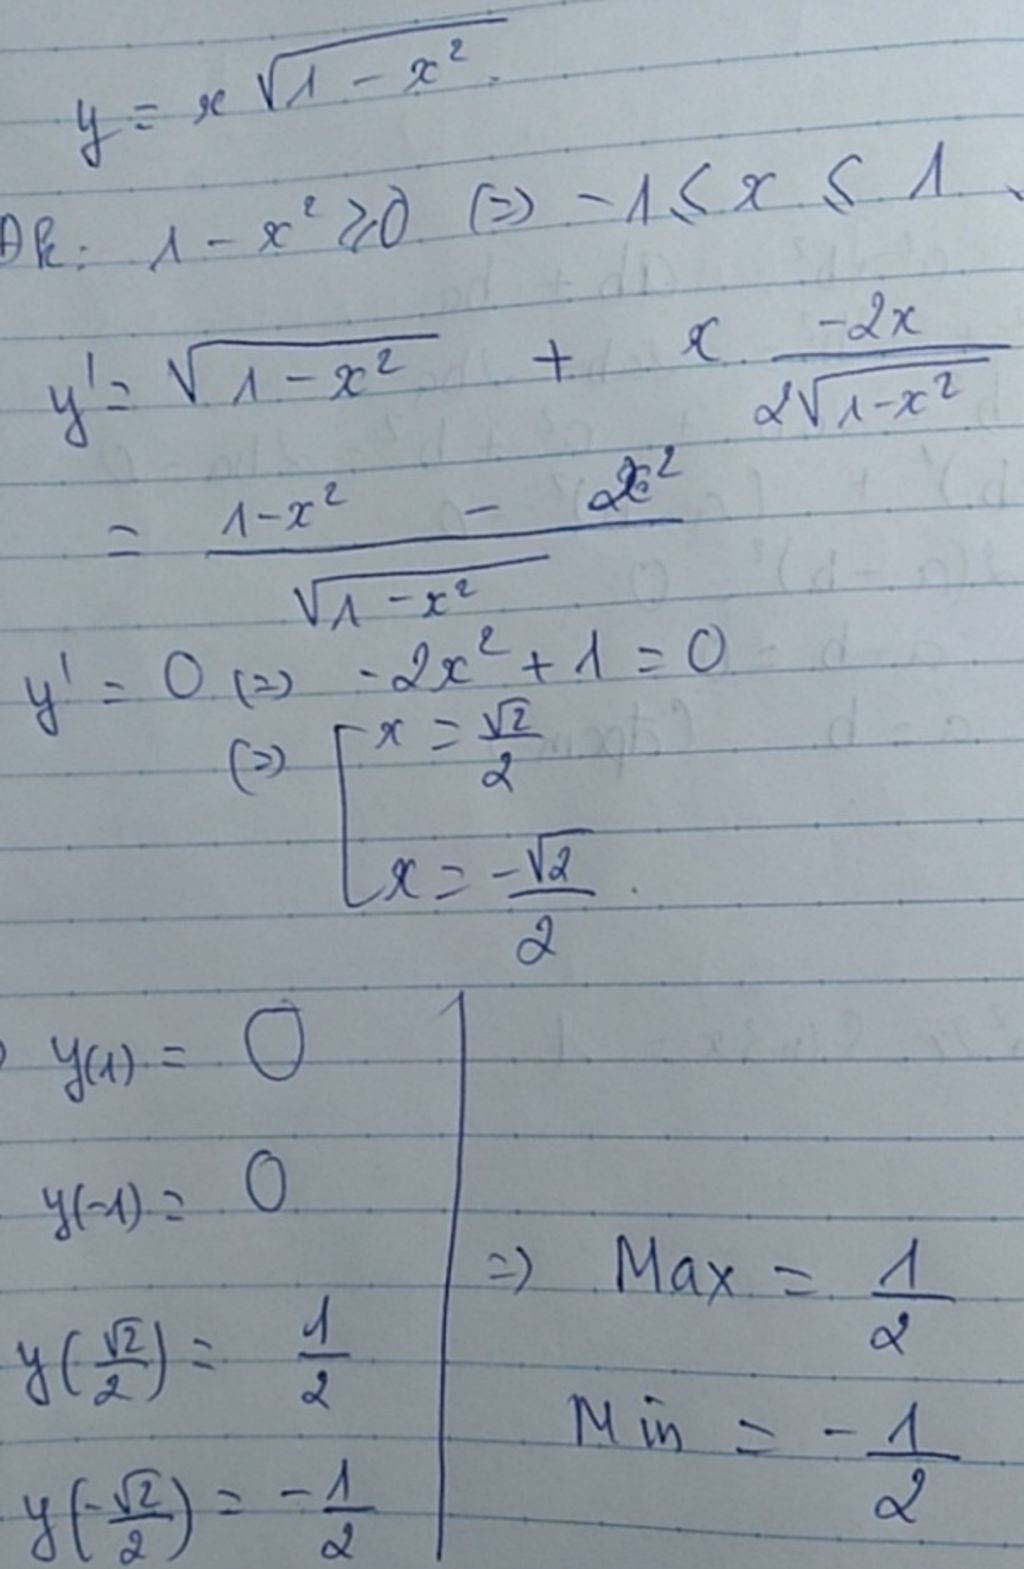 y = x √(1 - x²)
ĐK: 1 - x² ≥ 0 (=) -1 ≤ x ≤ 1
y' = √(1 - x²) + x (-2x)/(2√(1-x²))
= (1-x² - x²)/√(1-x²)
y' = 0 (=) -2x² + 1 = 0
(=) [ x = √2/2
x = -√2/2 .
y(1) = 0
y(-1) = 0
y(√2/2) = 1/2
y(-√2/2) = -1/2
=) Max = 1/2
Min = -1/2